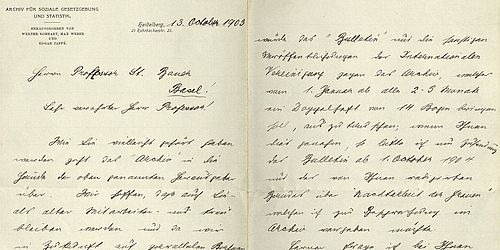 ARCHIV FÜR SOZIALE GESETZGEBUNG
UND STATISTIK.
HERAUSGEGEBEN VON
WERNER SOMBART, MAX WEBER
UND
EDGAR JAFFÉ.
Heidelberg, 13. October 1903
Herrn Professor St. Bauer
Basel!
Sehr verehrter Herr Professor!
Wie Sie vielleicht gehört haben
werden geht das Archiv in die
Hände der oben genannten Herausgeber
über. Wir hoffen, dass auch Sie
als alter Mitarbeiter uns treu
bleiben werden und da wir
in Zukunft auf
würde das "Bulletin" und die sonstigen
Veröffentlichungen der Internationalen
Vereinigung gegen das Archiv, welches
vom 1. Januar ab alle 2-3 Monate
ein Doppelheft von 14 Bogen bringen
soll, auszutauschen; wenn Ihnen
das genehm, so bitte ich um Zusendung
des Bulletin ab 1. October
und der von Ihnen
Bandes über "Nachtarbeit der Frauen"
welchen ich zur Besprechung im
Archiv vergeben möchte.
Ferner frage ich bei Ihnen